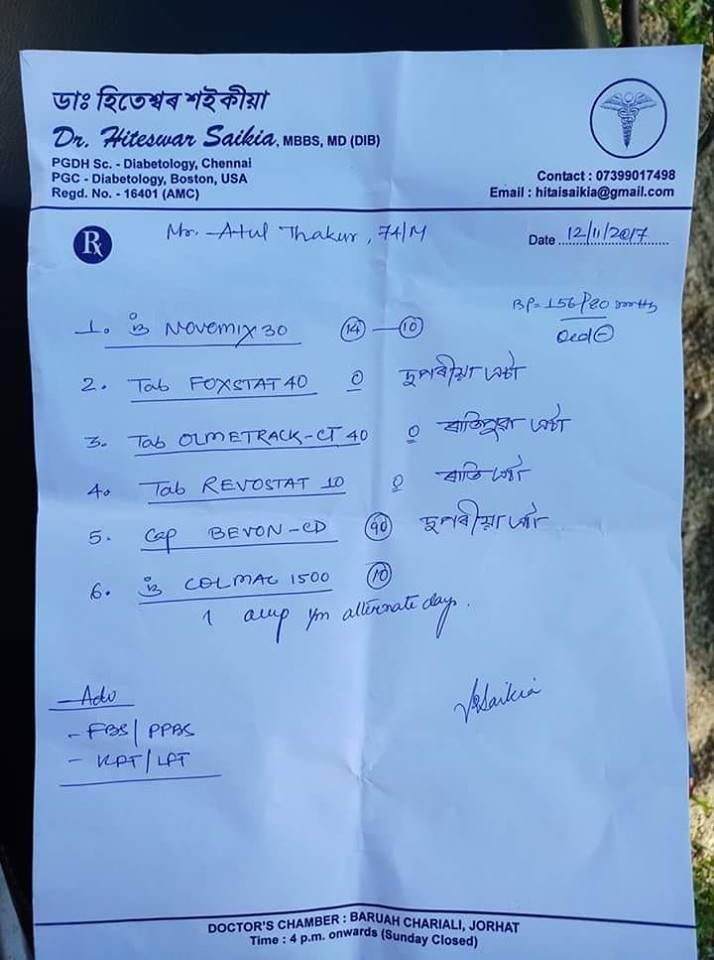 ডাঃ হিতেশ্বৰ শইকীয়া
Dr. Hiteswar Saikia, MBBS, MD (DIB)
PGDH Sc. - Diabetology, Chennai
PGC - Diabetology, Boston, USA
Regd. No. - 16401 (AMC)
Contact : 07399017498
Email : hitaisaikia@gmail.com
Rx
Mr. Atul Thakur, 74/M
Date 12/11/2017
BP= 156/80 mmHg
1. NOVOMIX 30 14 — 10
2. Tab FOXSTAT 40 দুপৰীয়া এটা
3. Tab OLMETRACK-CT 40 ৰাতিপুৱা এটা
4. Tab REVOSTAT 10 ৰাতি এটা
5. Cap BEVON-CD 90 দুপৰীয়া এটা
6. COLMAC 1500 10
1 amp alternate day.
Adv
- FBS/ PPBS
- KFT/LFT
DOCTOR'S CHAMBER : BARUAH CHARIALI, JORHAT
Time : 4 p.m. onwards (Sunday Closed)